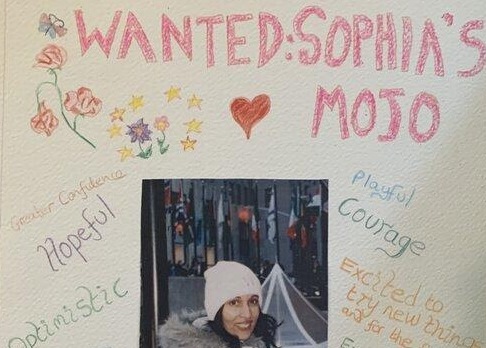 WANTED: SOPHIA'S
MOJO
Greater Confidence
Hopeful
Optimistic
Playful
Courage
Excited to
try new things
and for the